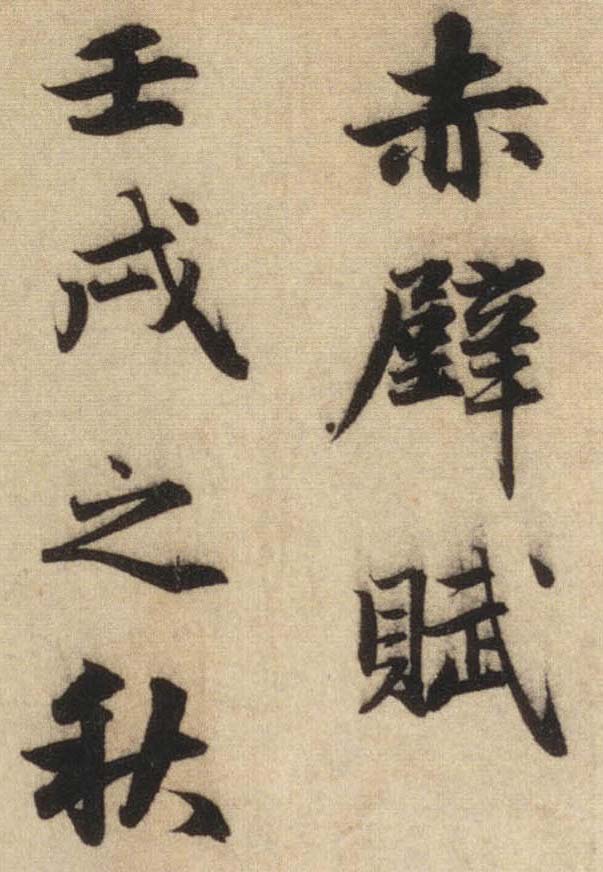 赤壁賦
壬戌之秋